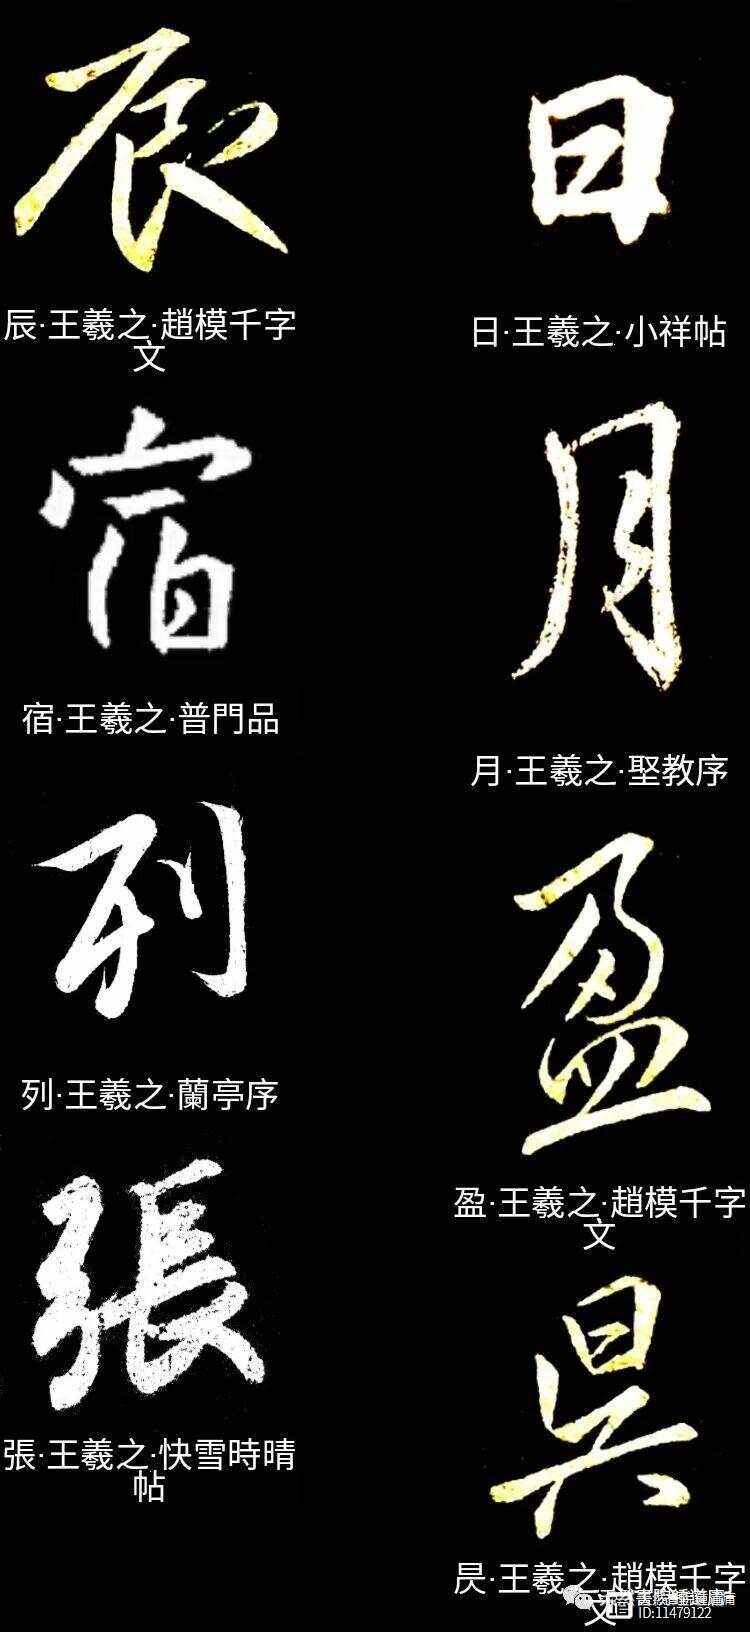 日
日·王羲之·小祥帖
月
月·王羲之·聖教序
盈
盈·王羲之·趙模千字
文
昃
昃·王羲之·趙模千字
文
ID:11479122
辰
辰·王羲之·趙模千字
文
宿
宿·王羲之·普門品
列
列·王羲之·蘭亭序
張
張·王羲之·快雪時晴
帖